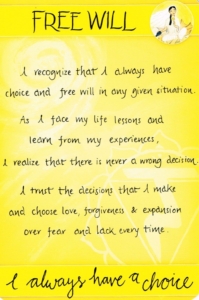 FREE WILL
I recognize that I always have
choice and free will in any given situation.
As I face my life lessons and
learn from my experiences,
I realize that there is never a wrong decision.
I trust the decisions that I make
and choose love, forgiveness & expansion
over fear and lack every time.
I always have a choice